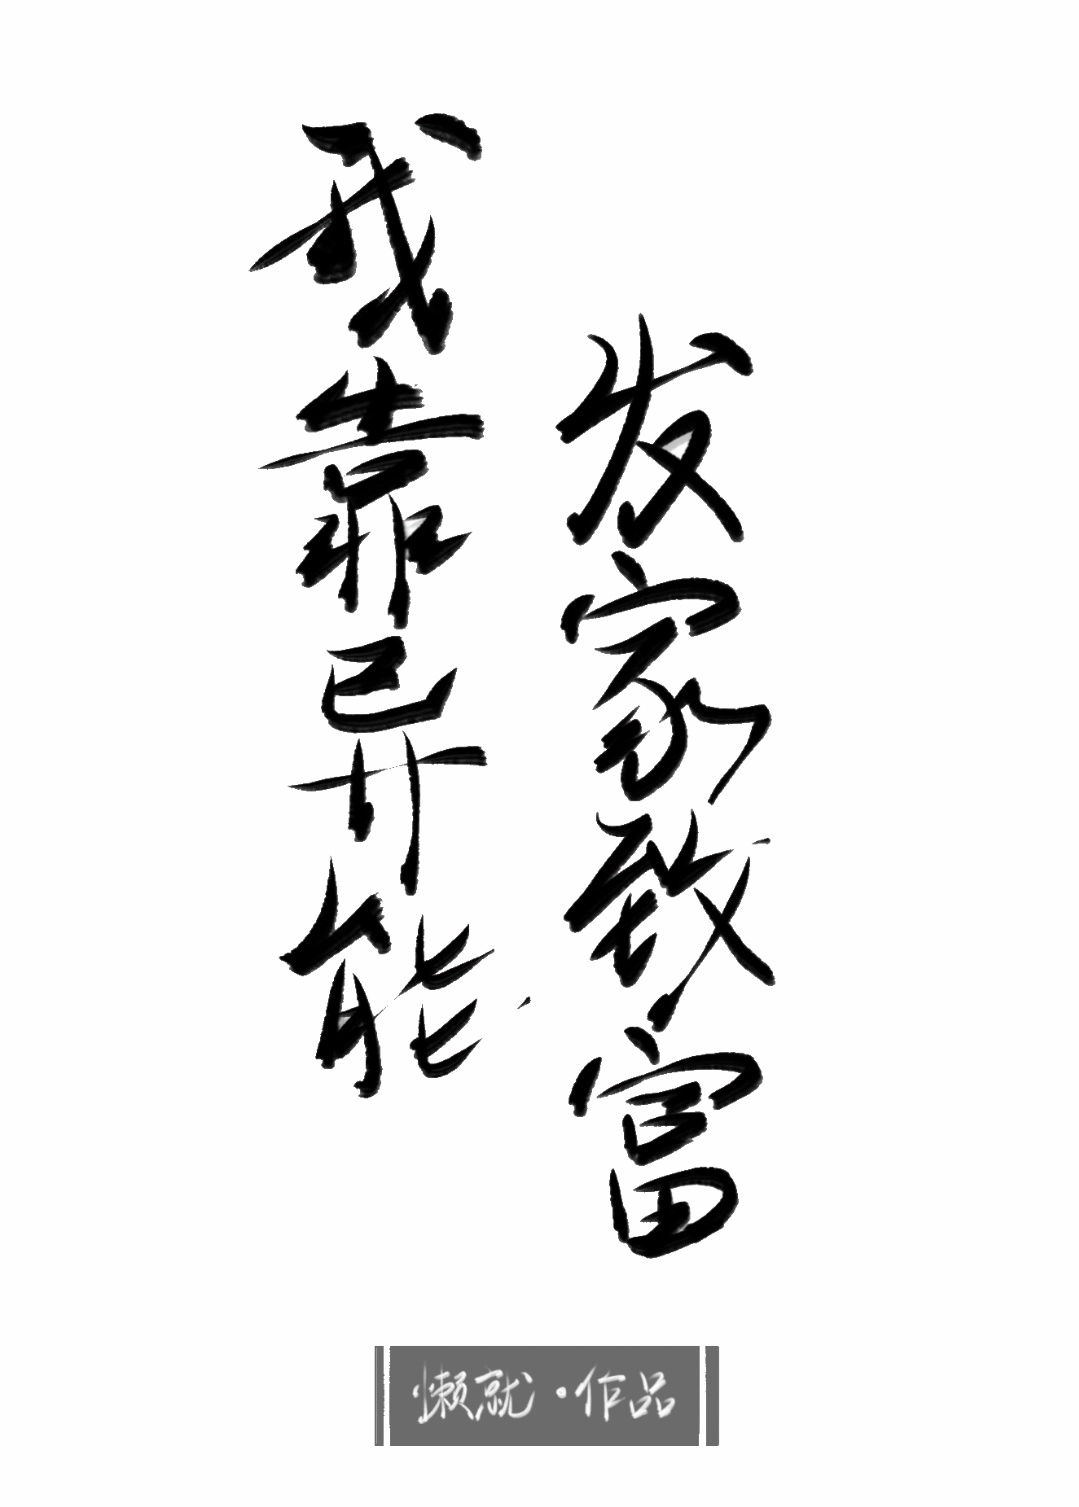 我靠异能
发家致富
懒就·作品